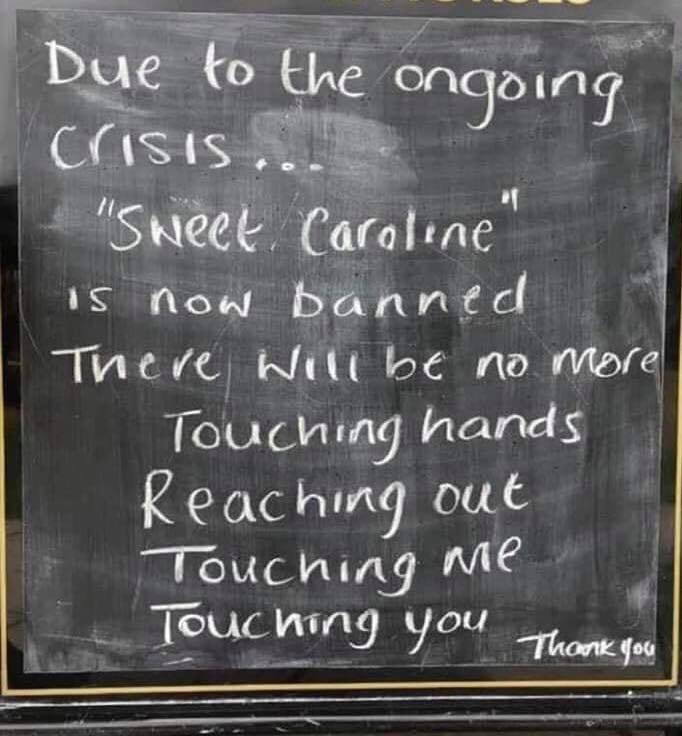 Due to the ongoing
crisis...
"Sweet Caroline"
is now banned
There will be no more
Touching hands
Reaching out
Touching me
Touching you
Thank you